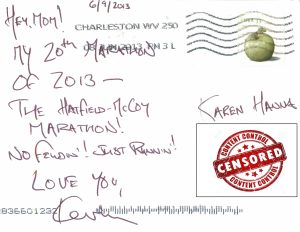 6/9/2013
HEY, MOM!
CHARLESTON WV 250
2013 PM 3 L
MY 20TH MARATHON
OF 2013 —
THE HATFIELD-McCOY
MARATHON!
NO FEUDIN'! JUST RUNNIN'!
LOVE YOU,
Kevin
KAREN HANNA
CONTENT CONTROL
CENSORED
CONTENT CONTROL